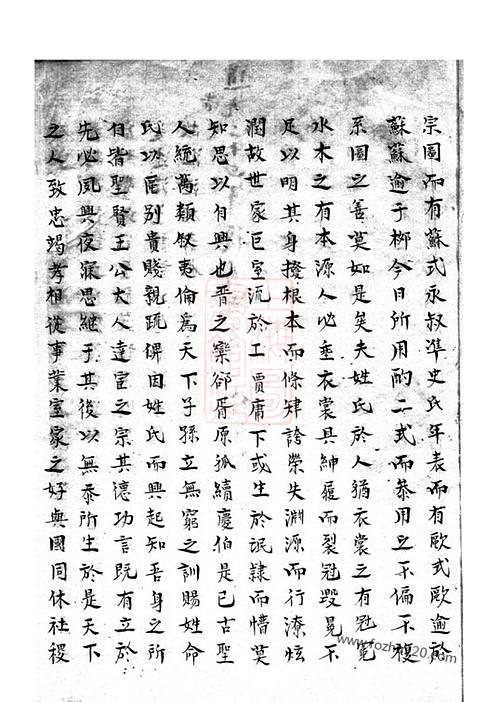 宗圖而有蘇式永叔準史氏年表而有歐式歐逾於
蘇蘇逾于栁今日所用酌二式而叅用之不偏不複
系圖之善莫如是矣夫姓氏於人猶衣裳之有冠冕
水木之有本源人必垂衣裳具紳履而裂冠毀冕不
足以明其身撥根本而條肄誇榮失淵源而行潦炫
潤故世家巨室流於工賈庸下或生於氓隷而㦗莫
知思以自興也晋之欒郤胥原狐續慶伯是已古聖
人統萬類叙夷倫為天下子孫立無窮之訓賜姓命
氏以區别貴賤親疏俾因姓氏而興起知吾身之所
自皆聖賢王公大人達宦之宗其德功言既有立於
先必夙興夜寐思繼于其後以無忝所生於是天下
之人致忠竭孝相從事業室家之好與國同休社稷
www.fozhu920.com